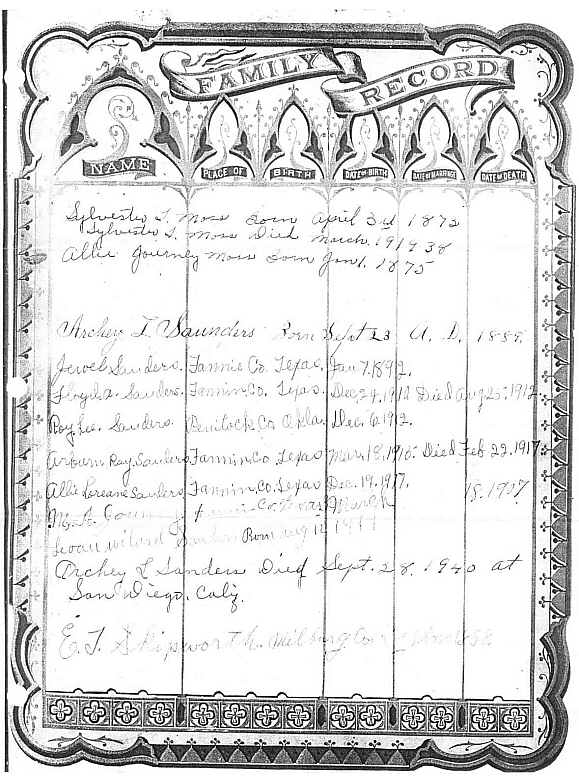 FAMILY RECORD
NAME
PLACE OF BIRTH DATE OF BIRTH DATE OF MARRIAGE DATE OF DEATH
Sylvester T. Moss Born April 3rd 1872
Sylvester T. Moss Died March 1919 38
Allie Gourney Moss Born Jan 1. 1875
Archey L Saunders Born Sept 23 A. D. 1889.
Jewel Sanders. Fannin Co. Texas. Jan 7, 1892.
Sanders. Fannin Co. Texas. Dec 29, 1910 Died Aug 25, 1912
Roy Lee Sanders Co Okla. Dec. 6, 1912.
Arburn Ray Sanders Fannin Co. Texas Mar. 18, 1915. Died Feb 22, 1917.
Allie Loreane Sanders Fannin Co. Texas Dec. 19, 1917.
Co. Texas March 18, 1907
Born Aug
Archey L Sanders Died Sept. 28. 1940 at
San Diego. Calif.
E. T. Skipworth.